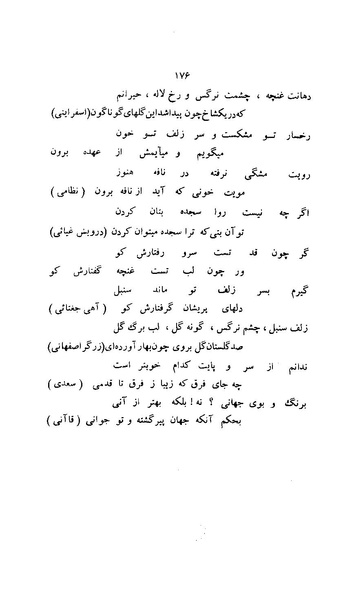 ۱۷۶
دهانت غنچه ، چشمت نرگس و رخ لاله ، حیرانم
که در یکشاخ چون پیدا شد این گلهای گوناگون (اسفراینی)
رخسار تو مشکست و سر زلف تو خون
میگویم و میآیمش از عهده برون
رویت مشگی نرفته در نافه هنوز
مویت خونی که آید از نافه برون ( نظامی )
اگر چه نیست روا سجده بتان کردن
تو آن بتی که ترا سجده میتوان کردن (درویش غیاثی)
گر چون قد تست سرو رفتارش کو
ور چون لب تست غنچه گفتارش کو
گیرم بسر زلف تو ماند سنبل
دلهای پریشان گرفتارش کو ( آهی جغتائی )
زلف سنبل ، چشم نرگس ، گونه گل ، لب برگ گل
صد گلستان گل بروی چون بهار آورده‌ای (زرگر اصفهانی)
ندانم از سر و پایت کدام خوبتر است
چه جای فرق که زیبا ز فرق تا قدمی ( سعدی )
برنگ و بوی جهانی ؟ نه ! بلکه بهتر از آنی
بحکم آنکه جهان پیر گشته و تو جوانی ( قاآنی )